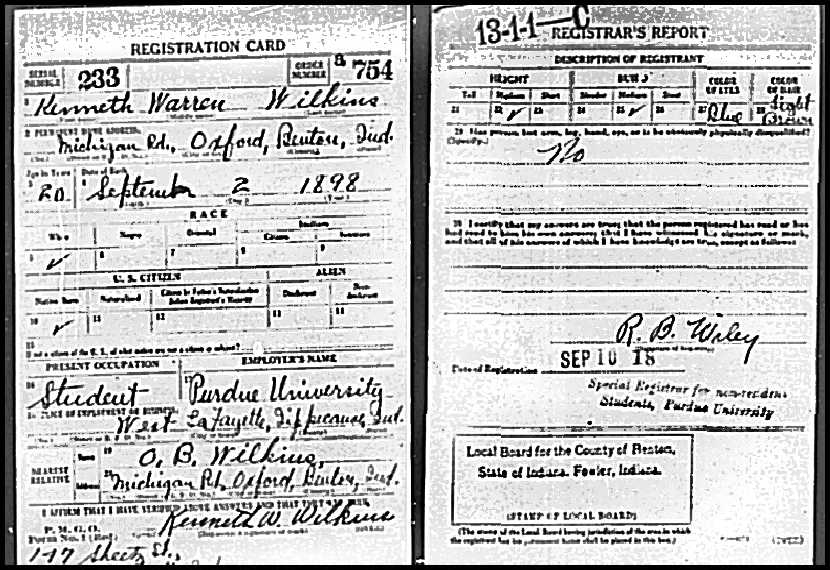 REGISTRATION CARD
SERIAL NUMBER 233
ORDER NUMBER a 754
Kenneth Warren Wilkins
Michigan Rd., Oxford, Benton, Ind.
Age in Years
Date of Birth
20 September 2 1898
RACE
White Negro Oriental Indian
Citizen
5 6 7 8 9
U. S. CITIZEN ALIEN
Native Born Naturalized Declarant Non-declarant
10 11 12 13 14
15
PRESENT OCCUPATION
EMPLOYER'S NAME
16 Student
17 Purdue University
West LaFayette, Tippecanoe, Ind.
NEAREST RELATIVE
Name 19 O. B. Wilkins,
Address 20 Michigan Rd., Oxford, Benton, Ind.
I AFFIRM THAT I HAVE VERIFIED ABOVE ANSWERS AND THAT THEY ARE TRUE
P. M. G. O.
Form No. 1 (Red)
Kenneth W. Wilkins
Sheetz St.,
13-1-1-C REGISTRAR'S REPORT
DESCRIPTION OF REGISTRANT
HEIGHT BUILD COLOR OF EYES COLOR OF HAIR
Tall Medium Short Slender Medium Stout
21 22 23 24 25 26 27 Blue 28 Light Brown
29 Has person lost arm, leg, hand, eye, or is he obviously physically disqualified?
(Specify.)
No
30 I certify that my answers are true; that the person registered has read or has
had read to him his own answers; that I have witnessed his signature or mark,
and that all of his answers of which I have knowledge are true, except as follows:
R. B. Wiley
Date of Registration SEP 10 18
Special Registrar for non-resident
Students, Purdue University
Local Board for the County of Benton,
State of Indiana. Fowler, Indiana.
(STAMP OF LOCAL BOARD)
(The stamp of the Local Board having jurisdiction of the area in which
the registrant has his permanent home shall be placed in this box.)